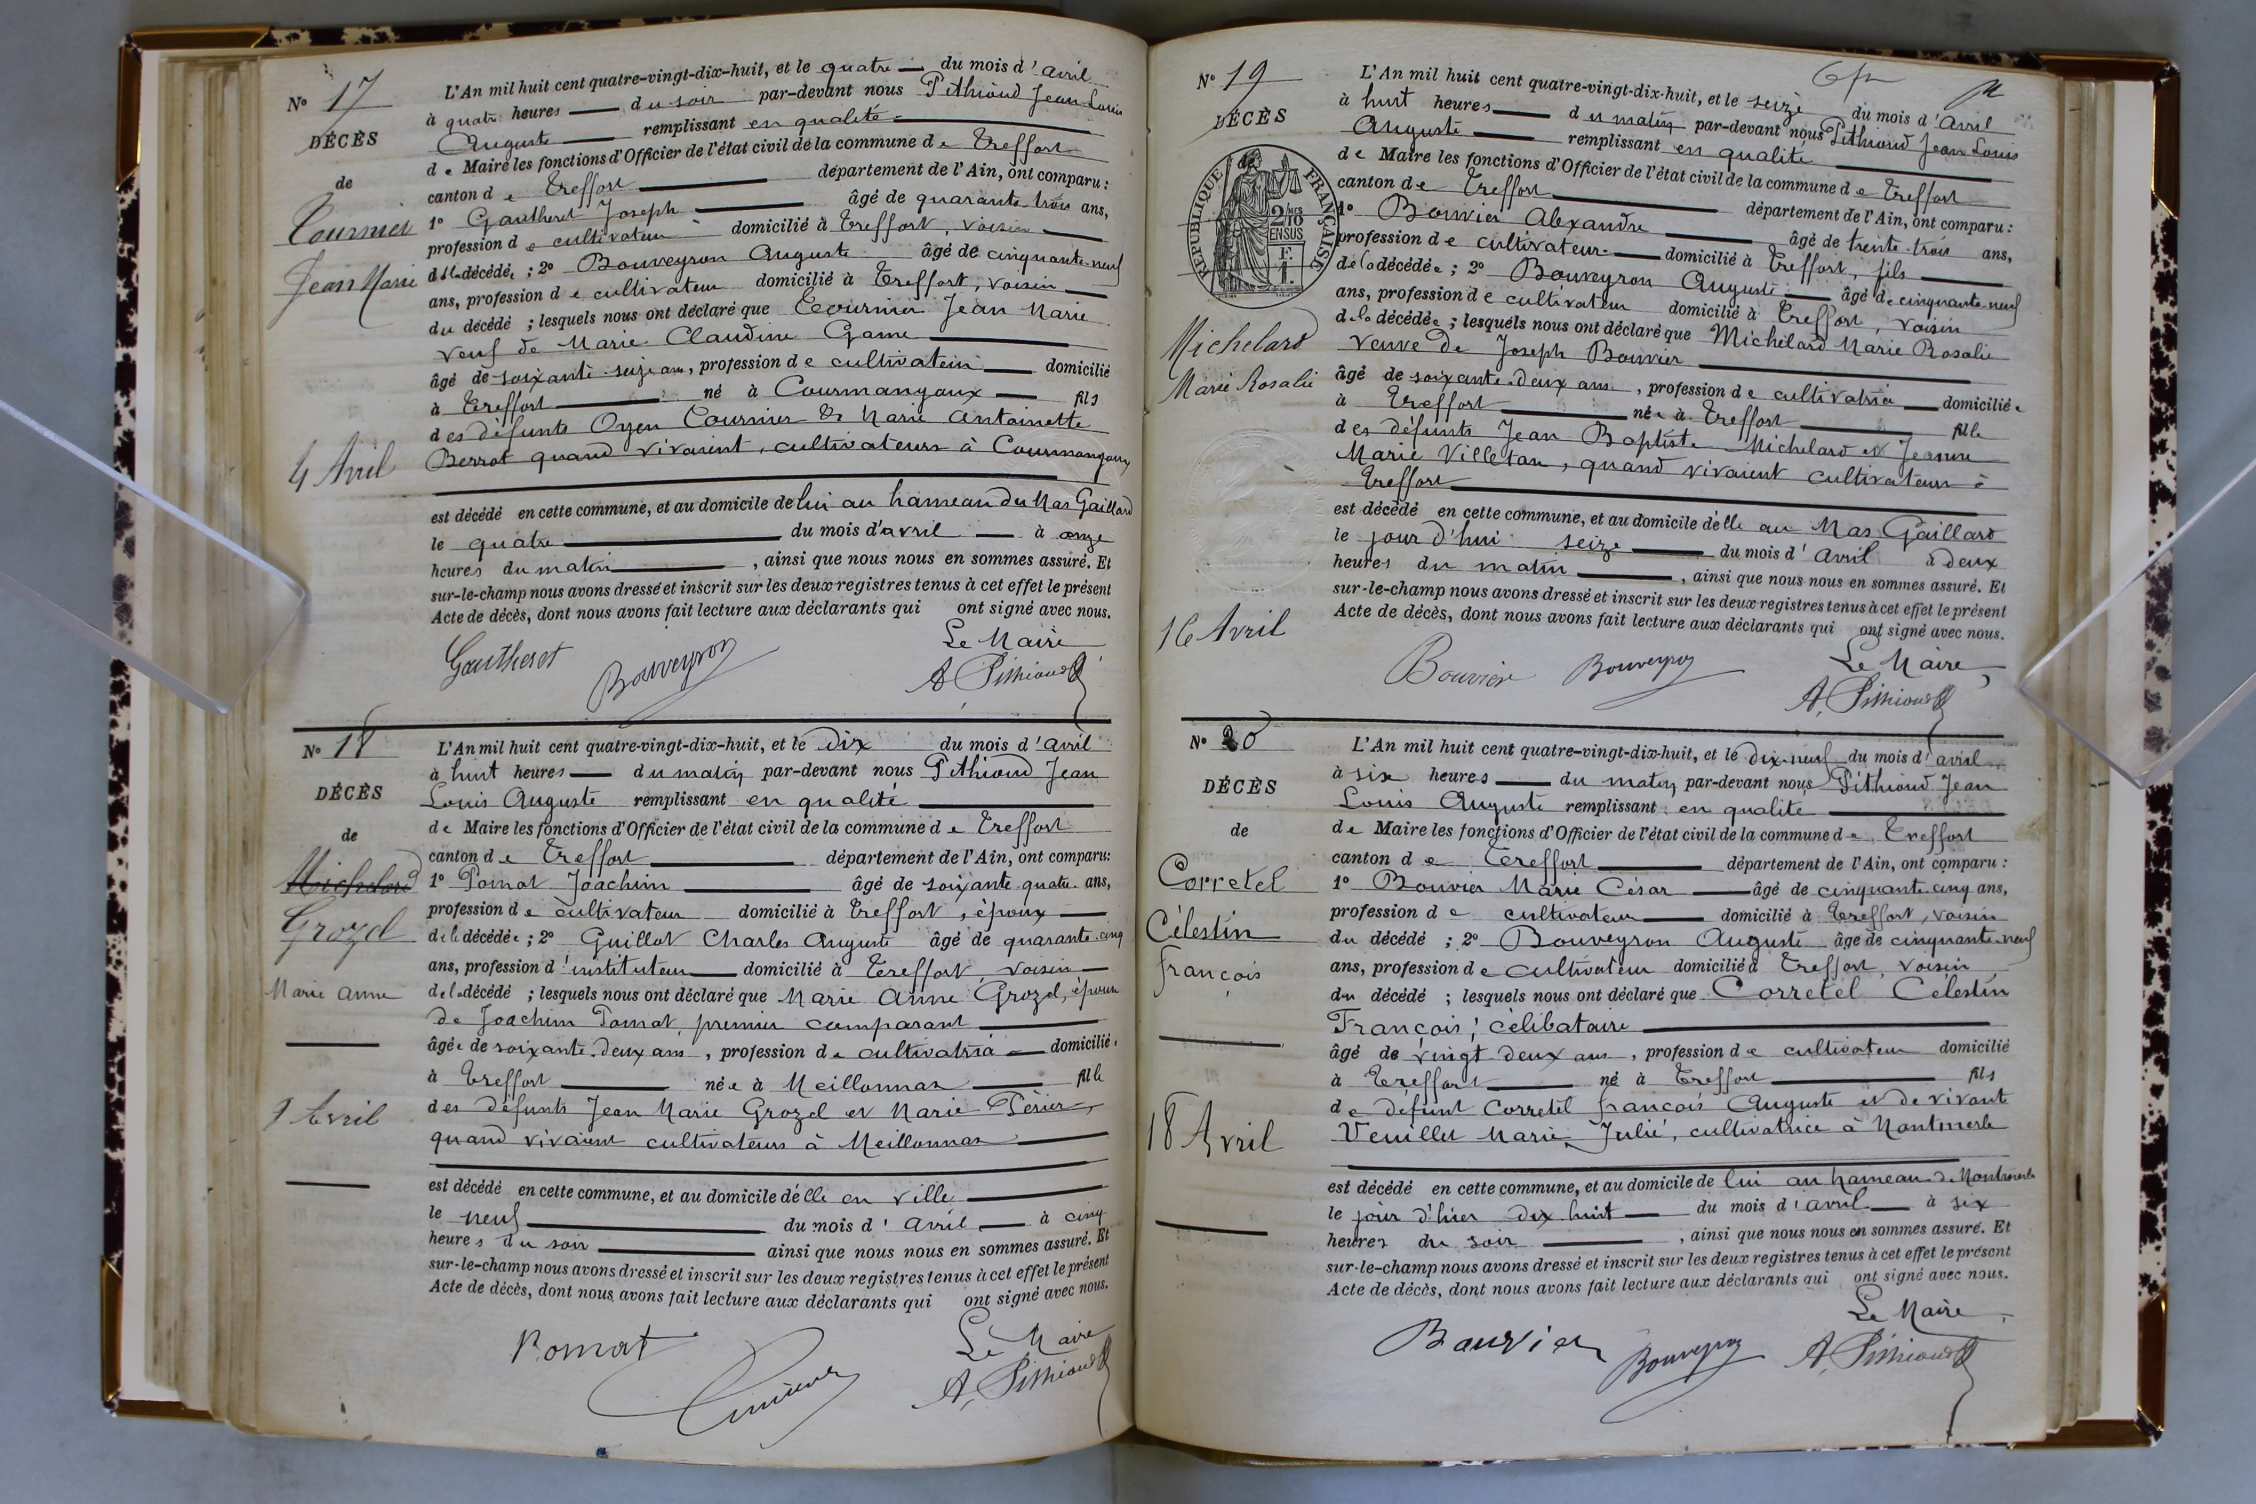 N° 17
DÉCÈS
de
Tournier
Jean Marie
4 Avril
L'An mil huit cent quatre-vingt-dix-huit, et le quatre du mois d'avril
à quatre heures du soir par-devant nous Pithioud Jean Louis
Auguste remplissant en qualité
de Maire les fonctions d'Officier de l'état civil de la commune de Treffort
canton de Treffort département de l'Ain, ont comparu :
1° Gautheret Joseph âgé de quarante trois ans,
profession de cultivateur domicilié à Treffort, voisin
du décédé ; 2° Bouveyron Auguste âgé de cinquante-neuf
ans, profession de cultivateur domicilié à Treffort, voisin
du décédé ; lesquels nous ont déclaré que Tournier Jean Marie
veuf de Marie Claudine Game
âgé de soixante-seize ans, profession de cultivateur domicilié
à Treffort né à Courmangoux fils
des défunts Oyen Tournier & Marie Antoinette
Berrot quand vivaient, cultivateurs à Courmangoux
est décédé en cette commune, et au domicile de lui au hameau du Mas Gaillard
le quatre du mois d'avril à onze
heures du matin, ainsi que nous nous en sommes assuré. Et
sur-le-champ nous avons dressé et inscrit sur les deux registres tenus à cet effet le présent
Acte de décès, dont nous avons fait lecture aux déclarants qui ont signé avec nous.
Le Maire
Gautheret Bouveyron A. Pithioud
N° 18
DÉCÈS
de
Michelard
Grozel
Marie Anne
9 Avril
L'An mil huit cent quatre-vingt-dix-huit, et le dix du mois d'avril
à huit heures du matin par-devant nous Pithioud Jean
Louis Auguste remplissant en qualité
de Maire les fonctions d'Officier de l'état civil de la commune de Treffort
canton de Treffort département de l'Ain, ont comparu:
1° Pomat Joachim âgé de soixante quatre ans,
profession de cultivateur domicilié à Treffort, époux
de la décédée ; 2° Guillot Charles Auguste âgé de quarante-cinq
ans, profession d'instituteur domicilié à Treffort, voisin
de la décédé ; lesquels nous ont déclaré que Marie Anne Grozel, épouse
de Joachim Pomat, premier comparant
âgée de soixante-deux ans, profession de cultivatrice domiciliée
à Treffort née à Meillonnas fille
des défunts Jean Marie Grozel et Marie Périer,
quand vivaient cultivateurs à Meillonnas
est décédé en cette commune, et au domicile d'elle en ville
le neuf du mois d'avril à cinq
heures du soir ainsi que nous nous en sommes assuré. Et
sur-le-champ nous avons dressé et inscrit sur les deux registres tenus à cet effet le présent
Acte de décès, dont nous avons fait lecture aux déclarants qui ont signé avec nous.
Le Maire
Pomat A. Pithioud
N° 19
DÉCÈS
RÉPUBLIQUE FRANÇAISE
2/10
EN SUS
Michelard
Marie Rosalie
16 Avril
L'An mil huit cent quatre-vingt-dix-huit, et le seize du mois d'avril
à huit heures du matin par-devant nous Pithioud Jean Louis
Auguste remplissant en qualité
de Maire les fonctions d'Officier de l'état civil de la commune de Treffort
canton de Treffort département de l'Ain, ont comparu :
1° Bouvier Alexandre âgé de trente-trois ans,
profession de cultivateur domicilié à Treffort, fils
de la décédée ; 2° Bouveyron Auguste âgé de cinquante-neuf
ans, profession de cultivateur domicilié à Treffort, voisin
de la décédée ; lesquels nous ont déclaré que Michelard Marie Rosalie
veuve de Joseph Bouvier
âgé de soixante-deux ans, profession de cultivatrice domiciliée
à Treffort née à Treffort fille
des défunts Jean Baptiste Michelard et Jeanne
Marie Villetan, quand vivaient cultivateurs à
Treffort
est décédé en cette commune, et au domicile d'elle au Mas Gaillard
le jour d'hui seize du mois d'avril à deux
heures du matin, ainsi que nous nous en sommes assuré. Et
sur-le-champ nous avons dressé et inscrit sur les deux registres tenus à cet effet le présent
Acte de décès, dont nous avons fait lecture aux déclarants qui ont signé avec nous.
Le Maire
Bouvier Bouveyron A. Pithioud
N° 20
DÉCÈS
de
Corretel
Célestin
François
18 Avril
L'An mil huit cent quatre-vingt-dix-huit, et le dix-neuf du mois d'avril
à six heures du matin par-devant nous Pithioud Jean
Louis Auguste remplissant en qualité
de Maire les fonctions d'Officier de l'état civil de la commune de Treffort
canton de Treffort département de l'Ain, ont comparu :
1° Bouvier Marie César âgé de cinquante cinq ans,
profession de cultivateur domicilié à Treffort, voisin
du décédé ; 2° Bouveyron Auguste âgé de cinquante-neuf
ans, profession de cultivateur domicilié à Treffort, voisin
du décédé ; lesquels nous ont déclaré que Corretel Célestin
François, célibataire
âgé de vingt-deux ans, profession de cultivateur domicilié
à Treffort né à Treffort fils
de défunt Corretel françois Auguste et de vivante
Veuillet Marie Julie, cultivatrice à Montmerle
est décédé en cette commune, et au domicile de lui au hameau de Montmerle
le jour d'hier dix-huit du mois d'avril à six
heures du soir, ainsi que nous nous en sommes assuré. Et
sur-le-champ nous avons dressé et inscrit sur les deux registres tenus à cet effet le présent
Acte de décès, dont nous avons fait lecture aux déclarants qui ont signé avec nous.
Le Maire
Bouvier Bouveyron A. Pithioud